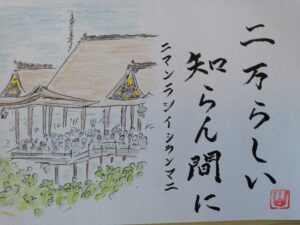 二万らしい
知らん間に
ニマンラシイシランマニ